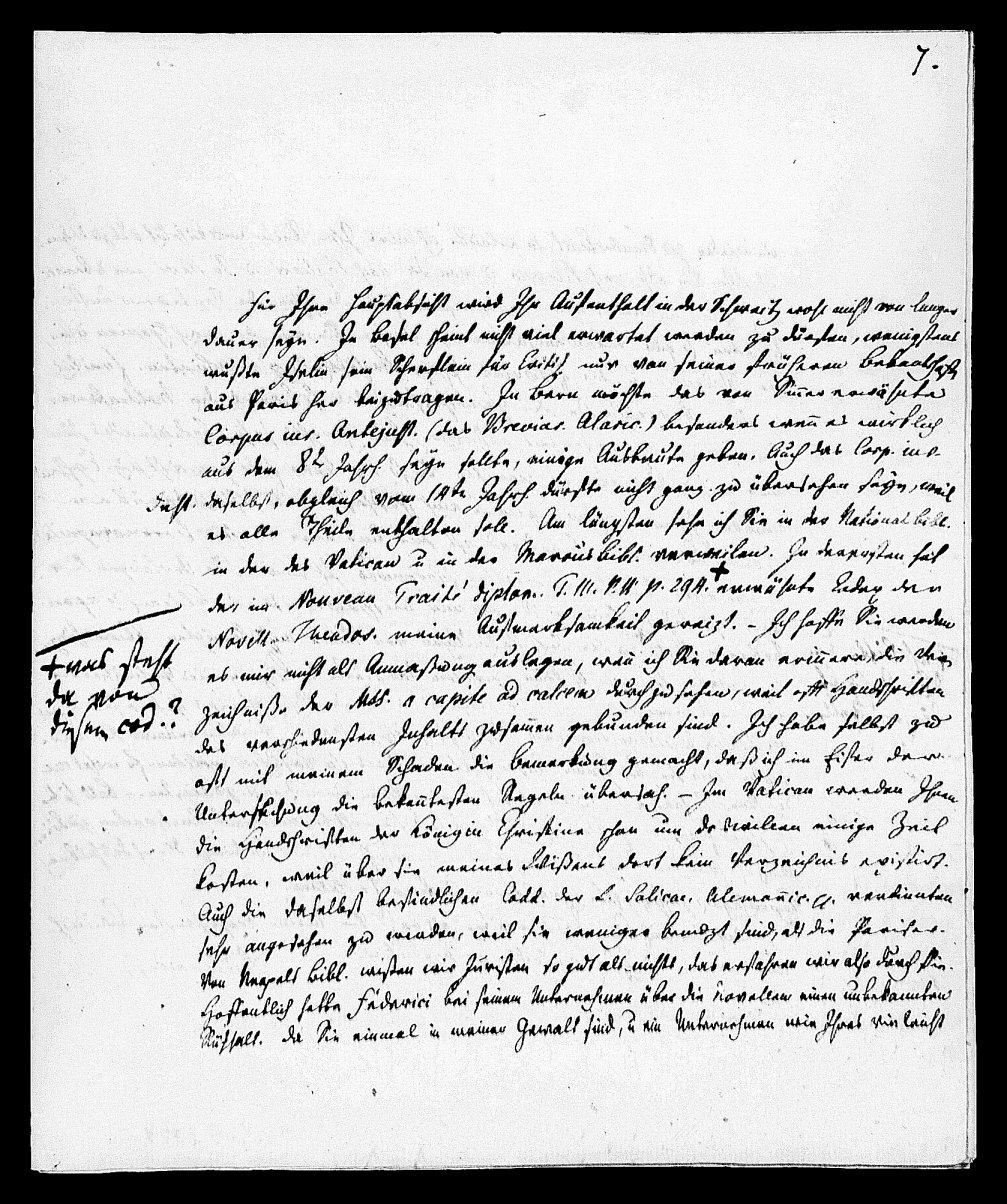 7.
Für Ihre Hauptabsicht wird Ihr Aufenthalt in der Schweitz wohl nicht von langer
dauer seyn. In Basel scheint nicht viel erwartet werden zu dürfen, wenigstens
wußte Iselin sein Scherflein für Critik nur von seiner früheren Bekanntschaft
aus Paris her beizutragen. In Bern möchte das von Sinner erwähnte
Corpus iur. Antejust. (das Breviar. Alaric.) besonders wenn es wirklich
aus dem 8ten Jahrh. seyn sollte, einige Ausbeute geben. Auch das Corp. iur.
Just. daselbst, obgleich vom 14ten Jahrh. dürfte nicht ganz zu übersehen seyn, weil
es alle Theile enthalten soll. Am längsten sehe ich Sie in der National bibl.
in der des Vatican u in der Marcusbibl. verweilen. In der ersten hat
der im Nouveau Traité diplom. T. III. P. II p. 294. + erwähnte Codex der
Novell. Theodos. meine Aufmerksamkeit gereizt. – Ich hoffe Sie werden
es mir nicht als Anmaßung auslegen, wenn ich Sie daran erinnere die Ver
zeichniße der Mss. a capite ad calcem durchzusehen, weil oft Handschriften
des verschiedensten Inhalts zusammen gebunden sind. Ich habe selbst zu
oft mit meinem Schaden die Bemerkung gemacht, daß ich im Eifer der
Untersuchung die bekanntesten Regeln übersah. – Im Vatican werden Ihnen
die Handschriften der Königin Christine schon um deswillen einige Zeit
kosten, weil über sie meines Wißens dort kein Verzeichnis existirt.
Auch die daselbst befindlichen Codd. der L. Salicae, Alemannic. pp. verdienten
sehr angesehen zu werden, weil sie weniger benuzt sind, als die Pariser.
Von Neapels Bibl. wißen wir Juristen so gut als nichts, das erfahren wir also durch Sie.
Hoffentlich hatte Féderici bei seinem Unternehmen über die Novellen einen unbekannten
Rückhalt. Da Sie einmal in meiner Gewalt sind, u ein Unternehmen wie Ihres vielleicht
+ was steht
da von
diesem cod.?